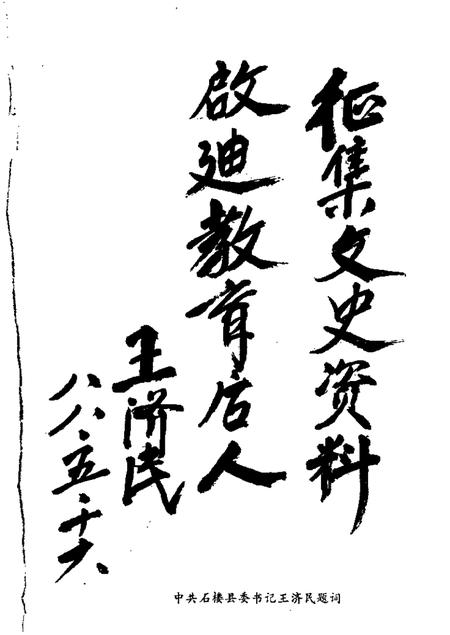 征集文史资料
啟迪教育后人
王济民
八八·五·十六
中共石楼县委书记王济民题词